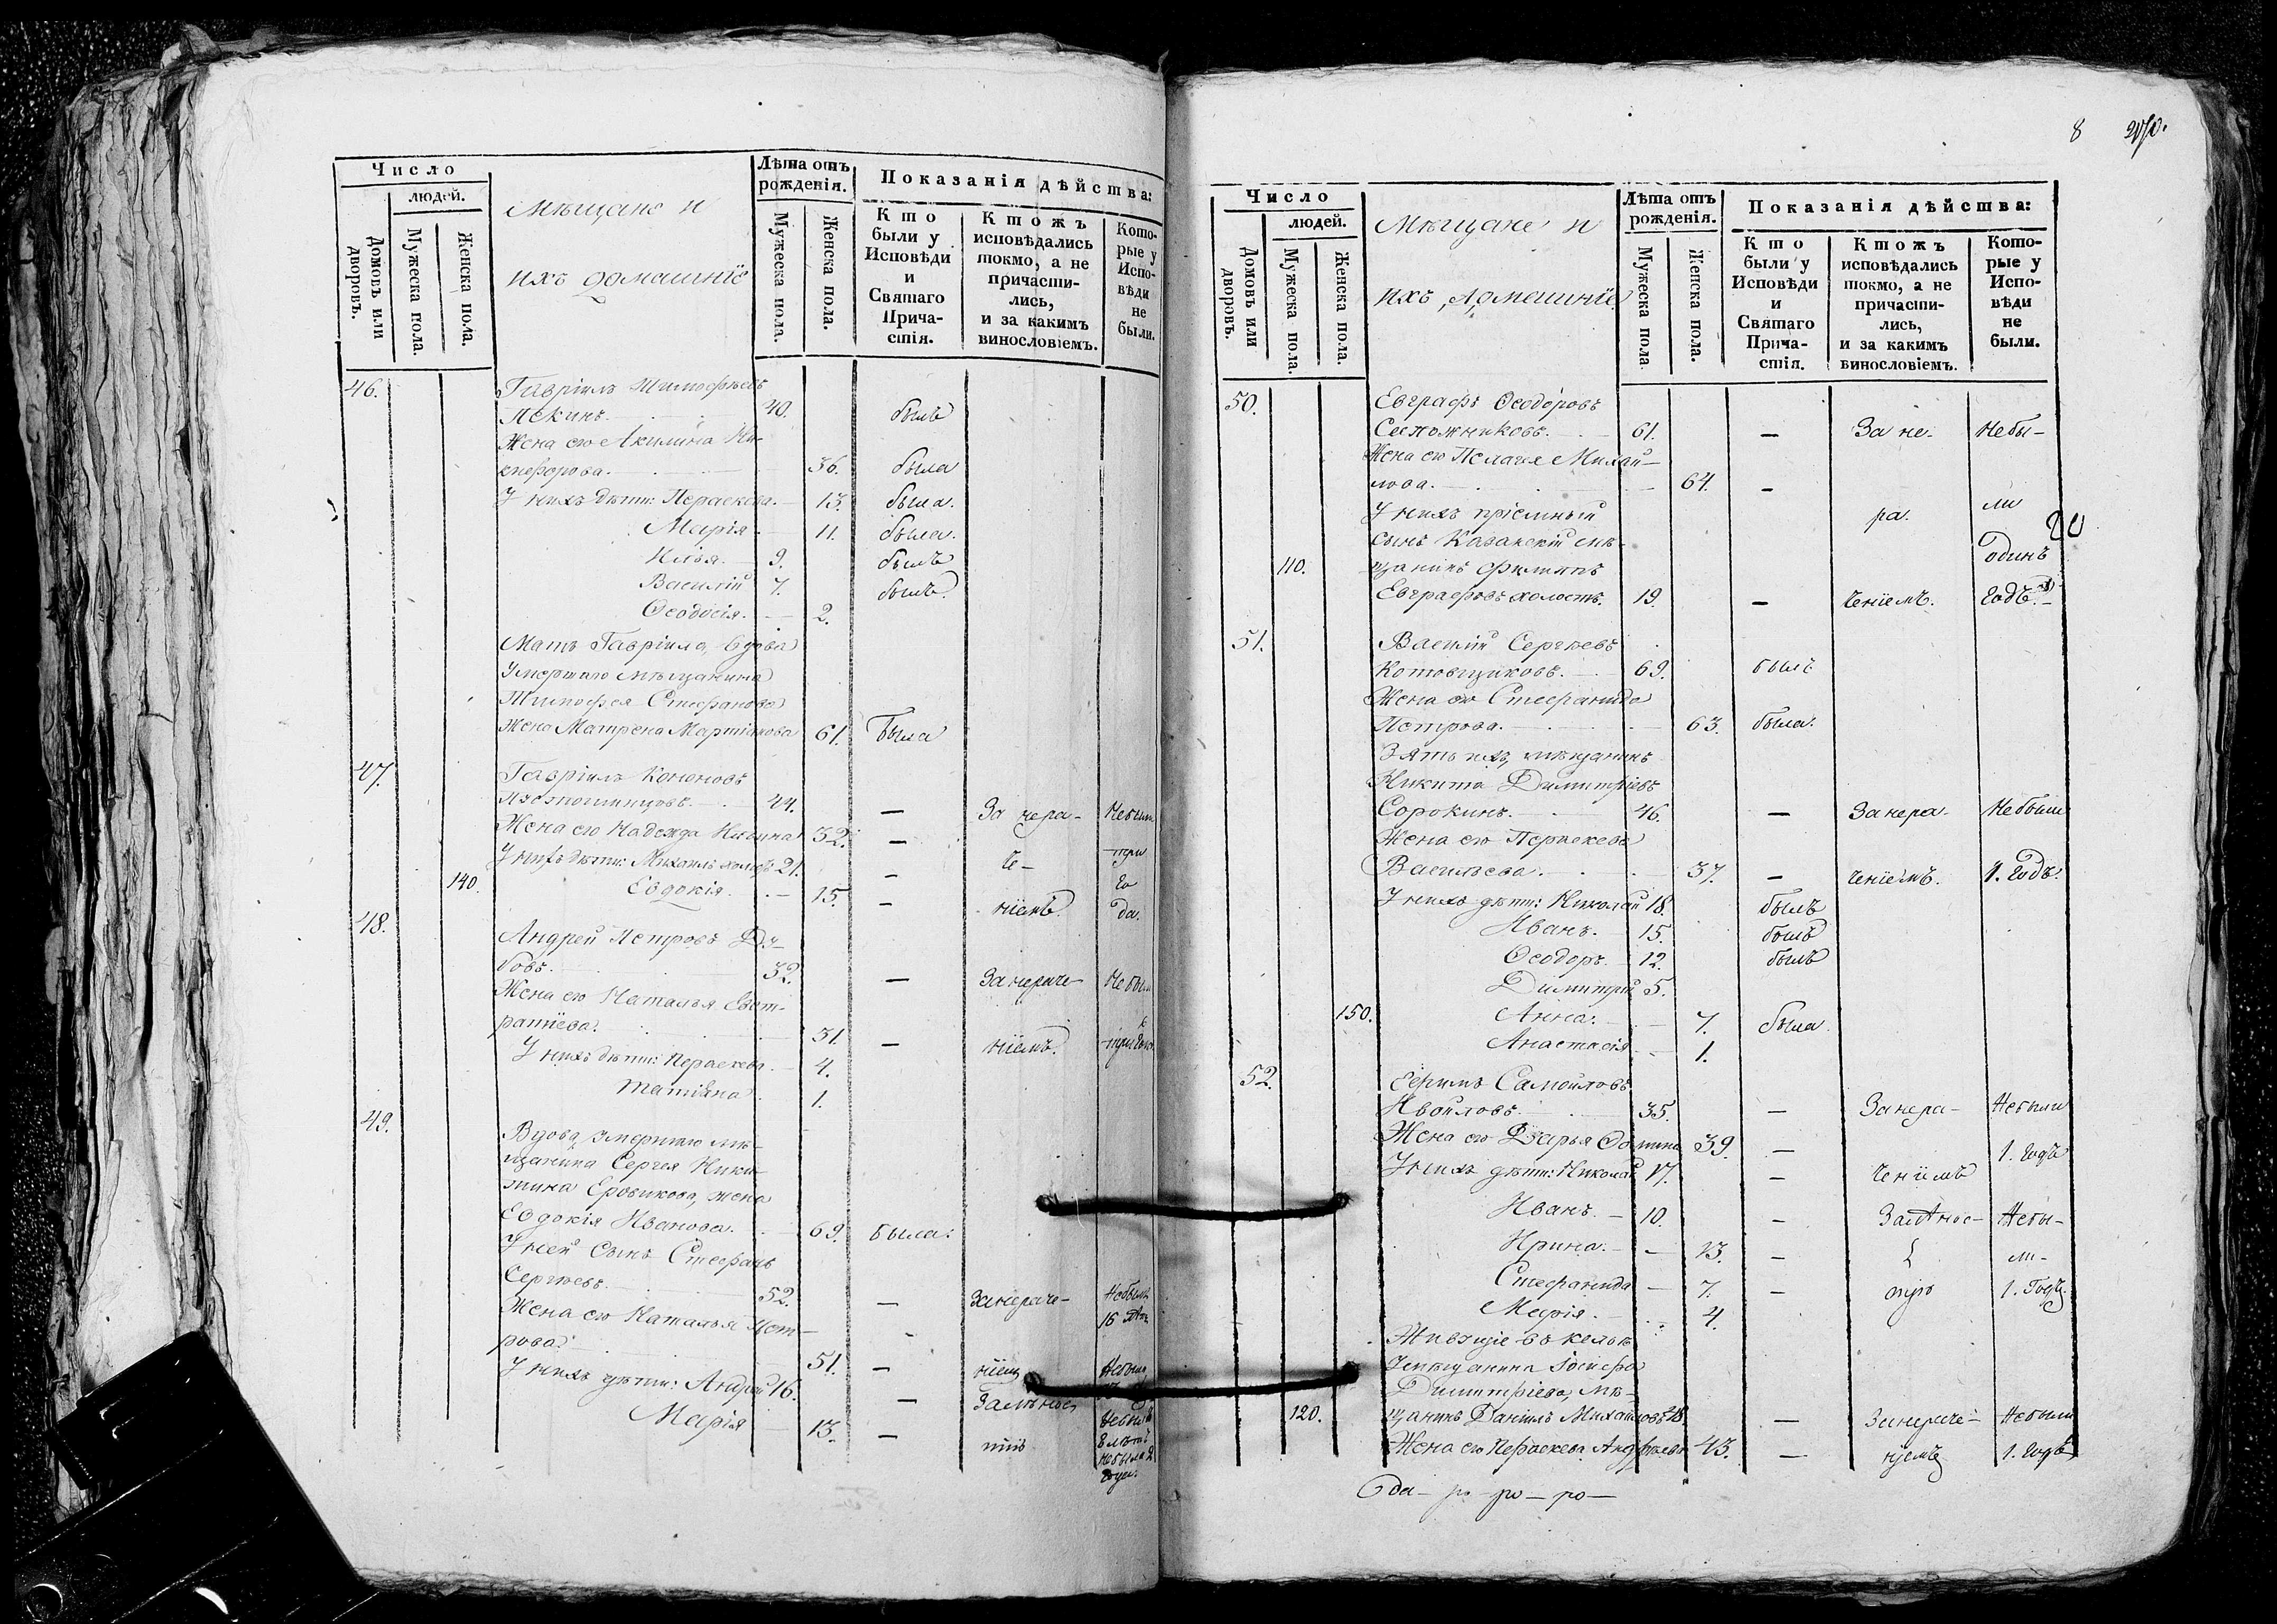 Число
людей.
Домовъ или дворовъ.
Мужеска пола.
Женска пола.
Мѣщане и
ихъ домашнїе
Лѣта отъ рожденія.
Мужеска пола.
Женска пола.
Показанія дѣйства:
Кто были у Исповѣди и Святаго Прича-стія.
Ктожъ исповѣдались токмо, а не причасти-лись, и за какимъ винословіемъ.
Кото-рые у Испо-вѣди не были.
46. Гавріилъ Тимофѣевъ
40. былъ
Жена его Акилина Ни-
кифорова. 36. была
У нихъ дѣти: Параскева. 13. была.
Марія 11. была.
Илья. 9. былъ
Василій 7. былъ.
Ѳеодосія. 2.
Мать Гавріила, вдова
Умершаго мѣщанина
Тимофея Стефанова
Жена Матрена Мартинова 61. Была
47. Гавріилъ Кононовъ
44. — За нера- Небыли
Жена его Надежда 32. —
У нихъ дѣти: Михаилъ холостъ 21. — че- три
140. Евдокія. 15. — нїемъ. го да.
48. Андрей Петровъ Ду-
бовъ. 32. — За нераче- Небыли
Жена его Наталья Евст-
ратїева. 31. — нїемъ. три года
У нихъ дѣти: Параскева. 4.
Татїана. 1.
49. Вдова, умершаго мѣ-
щанина Сергея Ники-
тина Еровикова, жена
Евдокїя Иванова. 69. была.
У ней Сынъ Стефанъ
Сергѣевъ. 52. — За нераче- Небылъ
16 лѣтъ
Жена его Наталья Пет-
рова. 51. — нїем Небыла
У нихъ дѣти: Андрей 16. —
Марїя 13. —
8
Число
людей.
Домовъ или дворовъ.
Мужеска пола.
Женска пола.
Мѣщане и
ихъ Домашнїе
Лѣта отъ рожденія.
Мужеска пола
Женска пола.
Показанія дѣйства:
Кто были у Исповѣди и Святаго Прича-стія.
Ктожъ исповѣдались токмо, а не причасти-лись, и за какимъ винословіемъ.
Кото-рые у Испо-вѣди не были.
50. Евграфъ Ѳеодоровъ
Сапожниковъ. 61. — За не- Небы-
Жена его Пелагея Михай-
лова. 64. —
У нихъ прїемный ра. ли
Сынъ Казанскїй мѣ- одинъ
110. щанинъ Филиппъ
Евграфовъ холостъ. 19. — ченїемъ. годъ.
51. Василїй Сергѣевъ
Котовщиковъ. 69. былъ
Жена его Стефанида
Петрова. 63. была.
Зять ихъ, мѣщанинъ
Никита Димитрїевъ
Сорокинъ. 46. — За нера- Небыли
Жена его Параскева
Васильева. 37. — ченїемъ. 1. годъ.
У нихъ дѣти: Николай 18. былъ
Иванъ. 15. былъ
Ѳеодоръ. 12. былъ
Димитрїй 5.
150. Анна. 7. была.
Анастасїя 1.
52. Ефимъ Самойловъ
35. — За нера- Небыли
Жена его Дарья Ѳомина 39. — 1. годъ
У нихъ дѣти: Николай 17. — ченїемъ
Иванъ. 10. — Небы-
Ирина. 13. — ли-
Стефанида 7. — 1. Годъ.
Марїя. 4.
Живущїе въ кельѣ
У мѣщанина Іосифа
Димитрїева, мѣ-
120. щанинъ Данїилъ Михайловъ — За нераче- Небыли
Жена его Параскева Андреева 43. — нїемъ 1. годъ